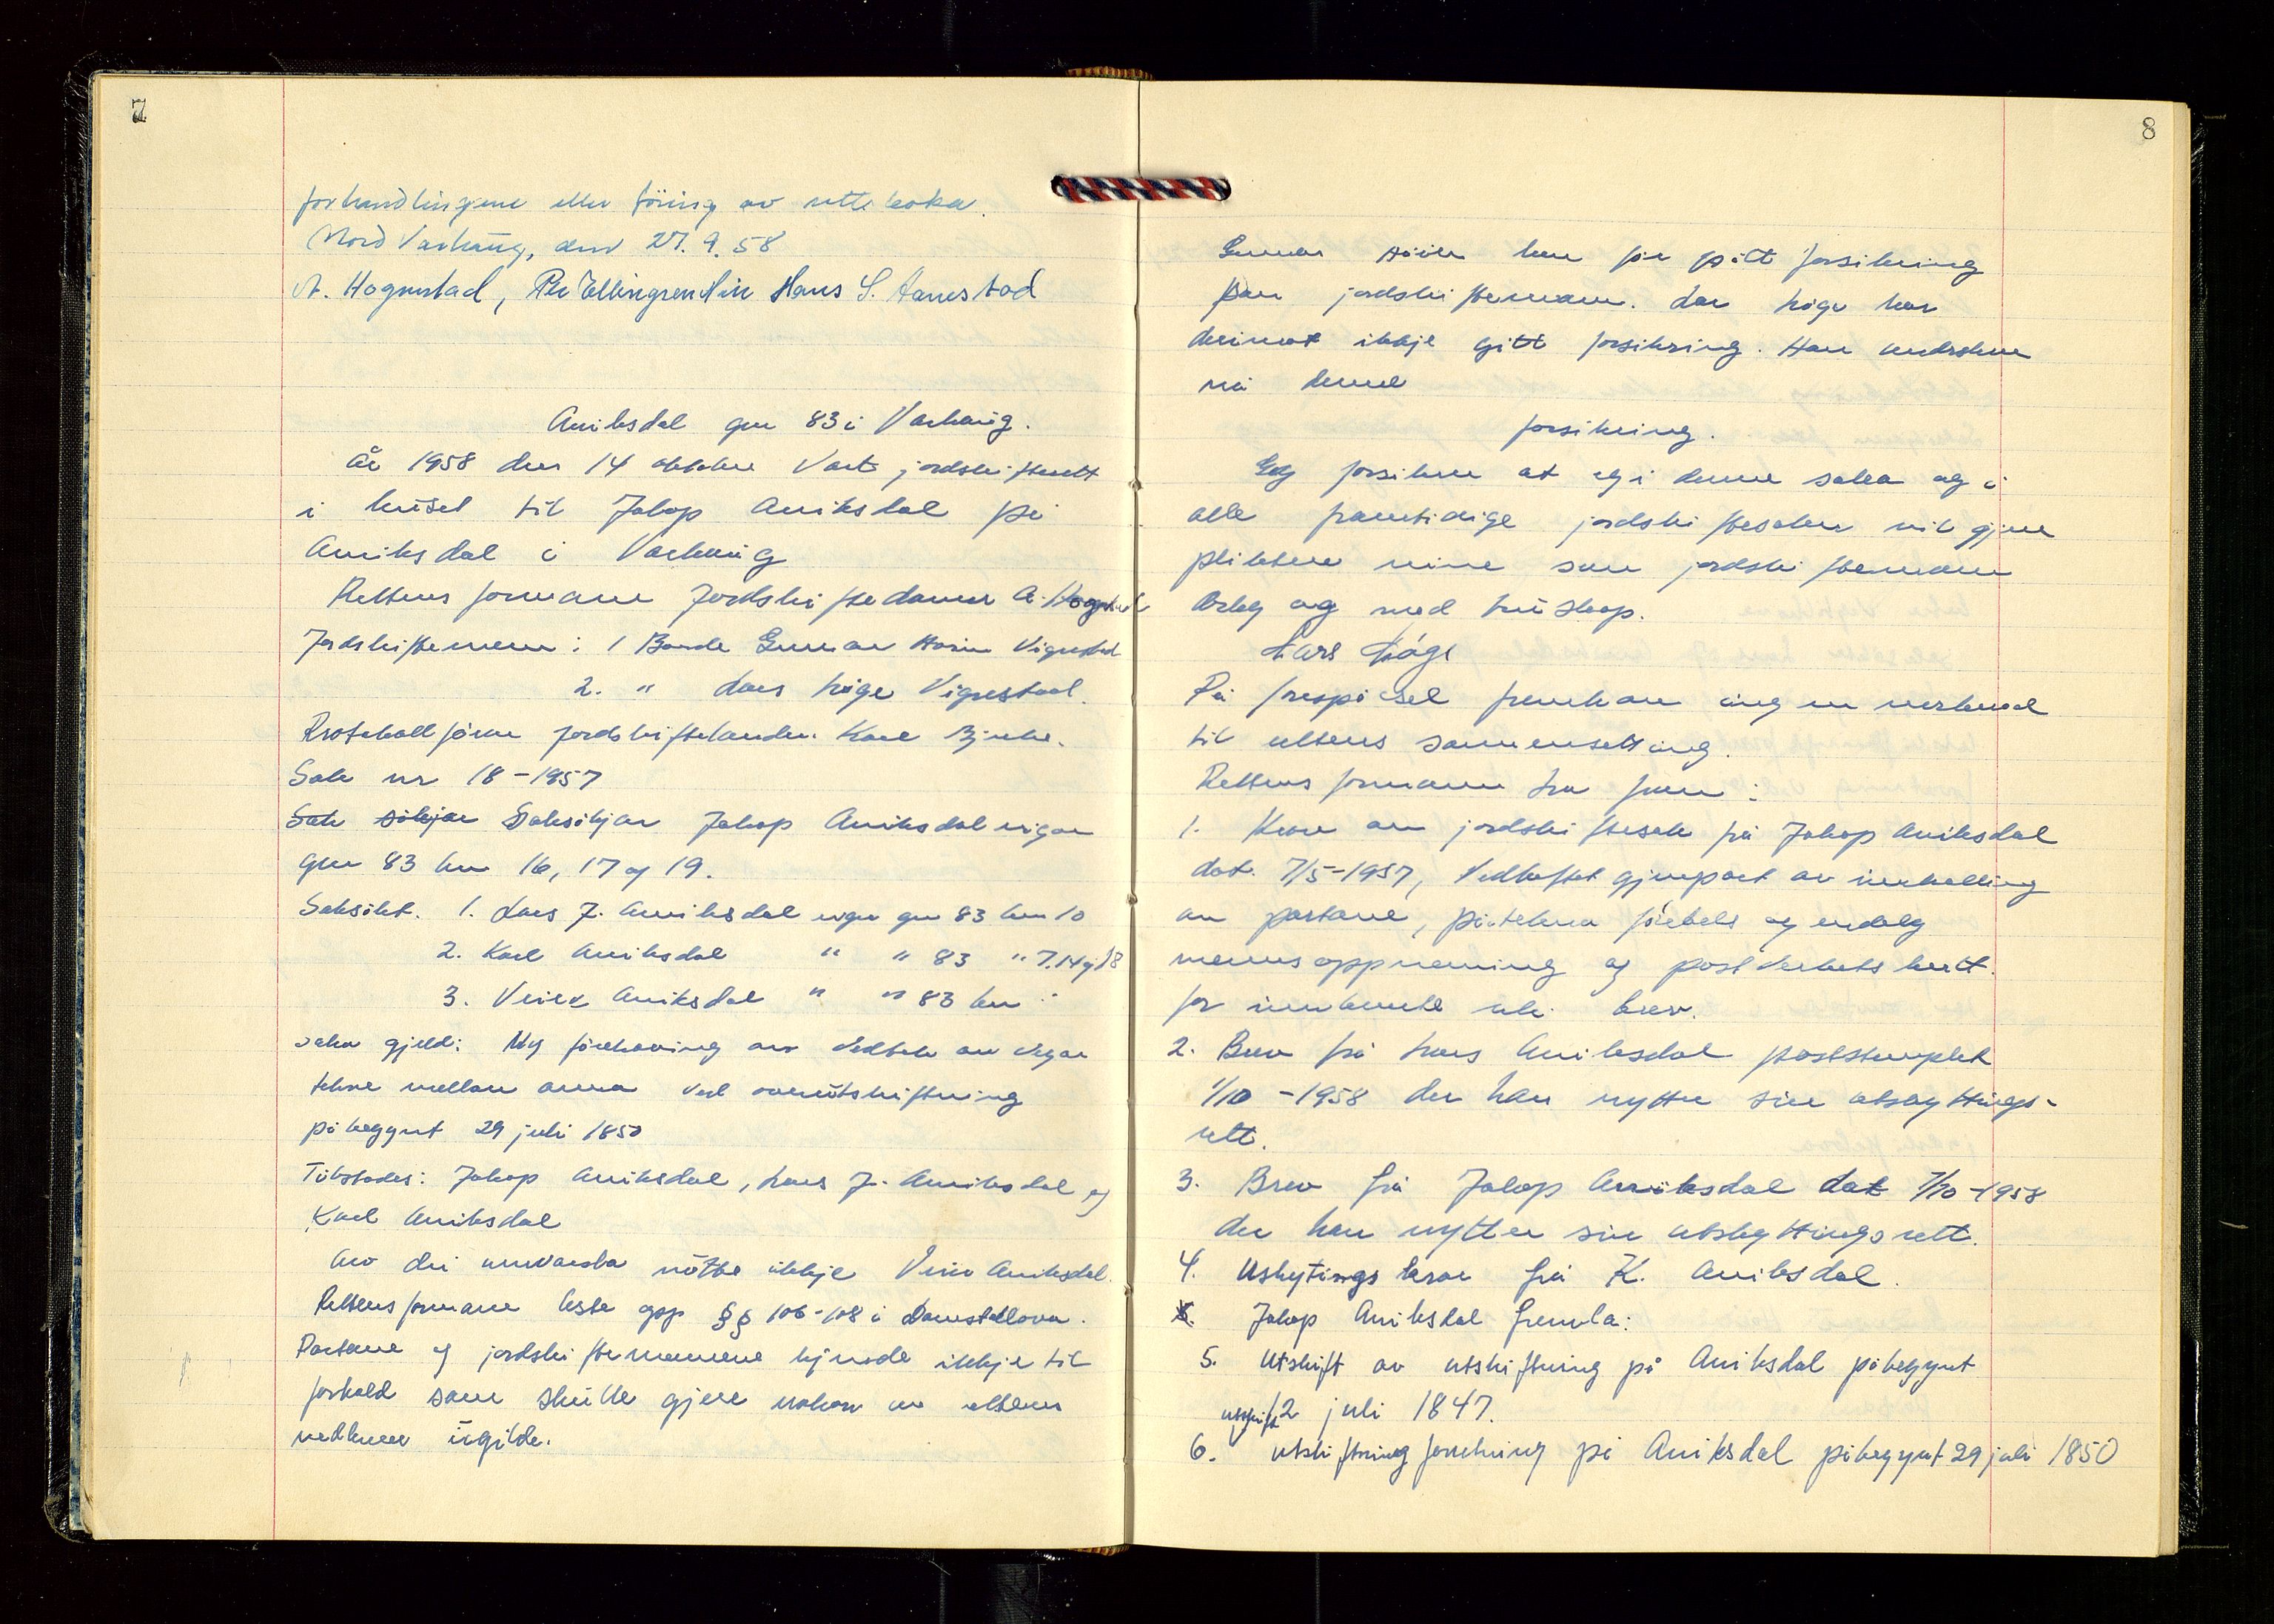 7
forhandlingene eller föring av rettsboka.
Nord Varhaug, den 27.9.58
A. Hognestad, Per Ellingsen Hans S. Aanestad
Aniksdal gnr 83 i Varhaug.
År 1958 den 14 oktober Vart jordskifterett
i huset til Jakop Aniksdal på
Aniksdal i Varhaug
Rettens formann Jordskiftedomer A. Hognestad
Jordskiftemenn: 1 Bonde Gunnar Vigrestad
2. " Lars Höge Vigrestad.
Protokollförar jordskiftekandidat Kåre
Sak nr 18-1957
Sak sökjar Saksökjar Jakop Aniksdal eigar
gnr 83 bnr 16, 17 og 19.
Saksökt. 1. Lars J. Aniksdal eigar gnr 83 bnr 10
2. Karl Aniksdal " " 83 " 7.14 og 18
3. Vier Aniksdal " " 83 bnr
Saka gjeld: Ny av vedtak om vegar
mellom anna ved overutskiftning
påbegynt 29 juli 1850
Tilstades: Jakop Aniksdal, Lars J. Aniksdal og
Karl Aniksdal
Av dei innvarsla mötte ikkje Vier Aniksdal.
Rettens formann leste opp §§ 106-108 i Domstollova.
Partane og jordskiftemennene kjende ikkje til
forhold som skulle gjere nokon av rettens
medlemer ugilde.
8
Gunnar har för gitt forsikring
som jordskiftemann. Lars Höge har
derimot ikkje gitt forsikring. Han underskrev
nå denne
forsikring.
Eg forsikrer at eg i denne saka og i
alle framtidige jordskiftesaker vil gjere
pliktene mine som jordskiftemann
ærleg og med truskap.
Lars Höge
På forespörsel framkom ingen merknad
til rettens sammensetting.
Rettens formann la fram:
1. Krav om jordskiftesak frå Jakop Aniksdal
dat. 7/5-1957, Vedheftet gjenpart av innkalling
av partane, påteikna förebels og endeleg
mannsoppnemning og postverkets kvitt.
for innleverte rek. brev.
2. Brev frå Lars Aniksdal poststemplet
1/10-1958 der han nytter sin utskytings-
rett.
3. Brev frå Jakop Aniksdal dat 7/10-1958
der han nytter sin utskyttingsrett.
4. Uskytings krav frå K. Aniksdal.
5. Jakop Aniksdal fremla:
5. Utskift av utskiftning på Aniksdal påbegynt
2 juli 1847.
utskift
6. utskiftning forretning på Aniksdal påbegynt 29 juli 1850